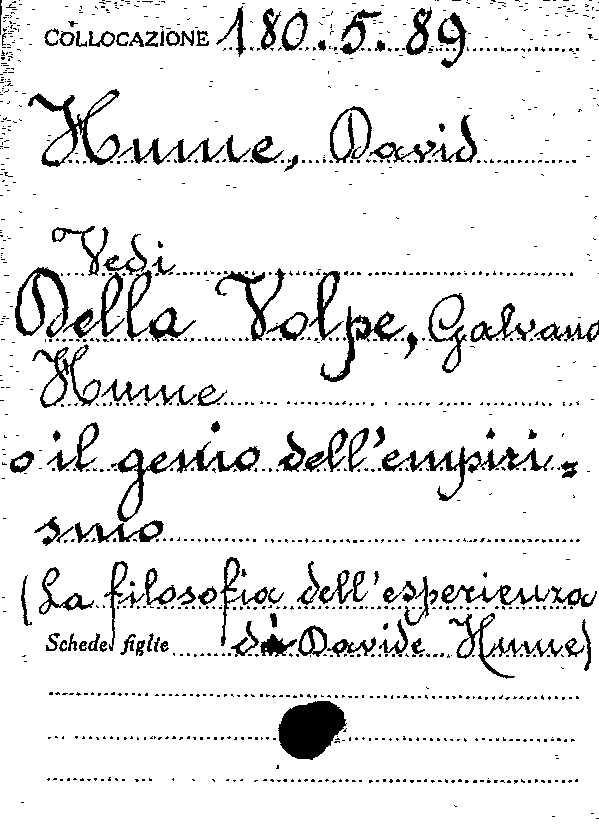 COLLOCAZIONE 180.5.89
Hume, David
Vedi
Della Volpe, Galvano
Hume
o il genio dell'empiri=
smo
(La filosofia dell'esperienza
Schede figlie di Davide Hume)